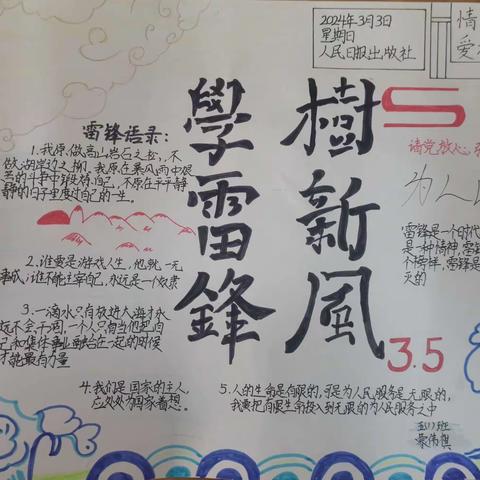 2024年3月3日
星期日
人民日报出版社
情
爱
學雷鋒
樹新風
3.5
请党放心
为人
雷锋语录:
1.我愿做高山岩石之松,不
做湖岸边之柳。我愿在暴风雨中
艰苦的斗争中锻炼自己,不愿在平平静
静的日子里度过自己的一生。
2.谁要是游戏人生,他就一无
事成;谁不能主宰自己,永远是一个奴隶
3.一滴水只有放进大海才永
远不会干涸,一个人只有当他把自
己和集体事业融合在一起的时候
才能最有力量
4.我们是国家的主人,
应处处为国家着想。
5.人的生命是有限的,可是为人民服务是无限的,
我要把有限生命投入到无限的为人民服务之中
雷锋是一个时代
是一种精神,雷锋
个榜样,雷锋是
灭的